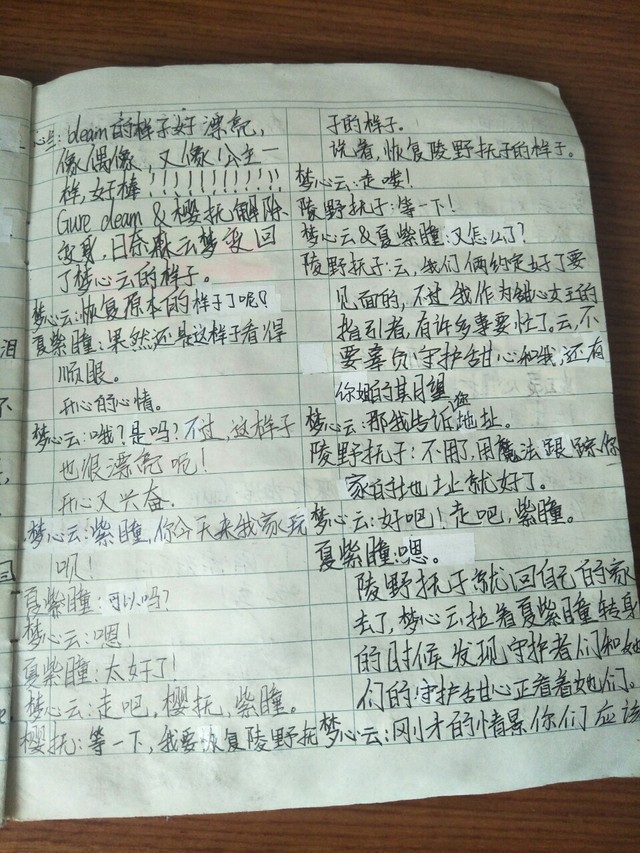 心兰：dleam的样子好漂亮，
像偶像，又像公主一
样，好棒！！！！！！！！！！！
Gure dleam & 樱抚解除
变身，日奈森云梦变回
了梦心云的样子。
梦心云：恢复原本的样子了呢？
夏紫瞳：果然还是这样看得
顺眼。
开心的心情。
梦心云：哦？是吗？不过，这样子
也很漂亮呢！
开心又兴奋。
梦心云：紫瞳，你今天来我家玩
呗！
夏紫瞳：可以吗？
梦心云：嗯！
夏紫瞳：太好了！
梦心云：走吧，樱抚，紫瞳。
樱抚：等一下，我要恢复陵野抚
子的样子。
说着，恢复陵野抚子的样子。
梦心云：走喽！
陵野抚子：等一下！
梦心云&夏紫瞳：又怎么了？
陵野抚子：云，我们俩约定好了要
见面的，不过我作为甜心女王的
指引者，有许多事要忙了。云，不
要辜负守护甜心和我，还有
你姐的期望
梦心云：那我告诉您地址。
陵野抚子：不用了，用魔法跟踪你
家的地址就好了。
梦心云：好吧！走吧，紫瞳。
夏紫瞳：嗯。
陵野抚子就回自己的家
去了，梦心云拉着夏紫瞳转身
的时候发现守护者们和她
们的守护甜心正看着她们。
梦心云：刚才的情景你们应该
泪
不